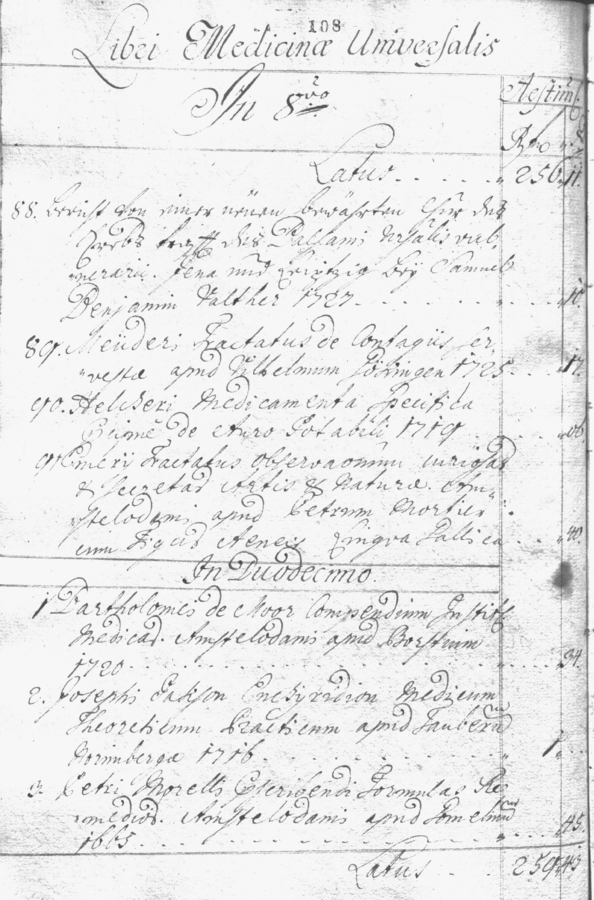 108
Libri Medicinæ Universalis
In 8vo
Aestim.
Latus . . . . . . 256. 11.
88. Bericht von einer neuen bewährten Cur des
Krebs des Balsami
Jena und Leipzig bey Samuel
Benjamin Walther 1727 . . . . . . 10.
89. Meuderi Tractatus de Contagiis
apud Wilhelmum 1725 . . . 17.
90. Helcheri Medicamenta Specifica
de Auro Potabili 1719 . . .
91. Emeri Tractatus Observationum curiosar
& Secretar Artis & Naturæ. Am-
stelodami apud Petrum Mortier
cum Figuris Aeneis Lingva Gallica . . 40.
In Duodecimo.
1. Bartholomei de Moor Compendium Instit.
Medicar. Amstelodami apud Borstium
1720 . . . . . . 34.
2. Josephi Jakson Enchyridion Medicum
Theoreticum Practicum apud Tauberum
Norimbergæ 1716 . . . 1.
3. Petri Morelli Scribendi Formulas Re-
medior. Amstelodami apud
1665 . . . . . . 45.
Latus . . . 259. 43